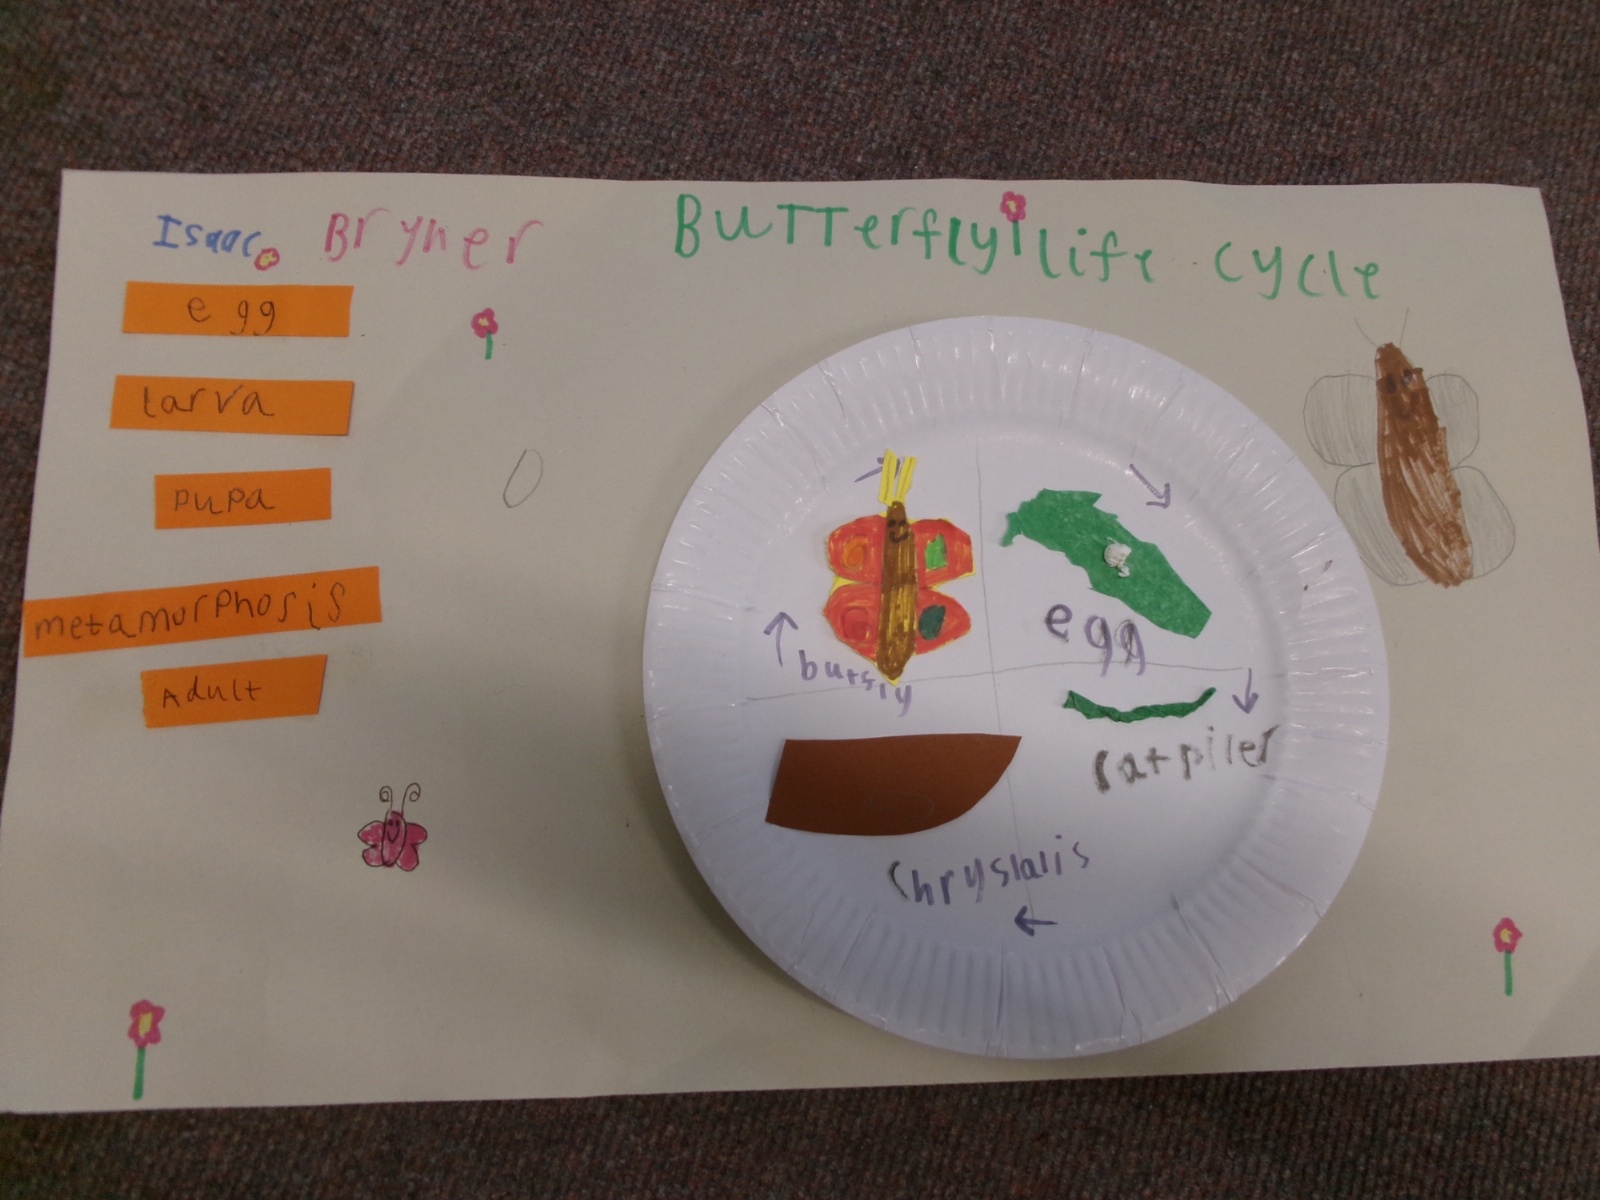 Isaac Bryner
Butterfly life cycle
egg
larva
pupa
metamorphosis
Adult
egg
catpiler
Chryslalis
butfly